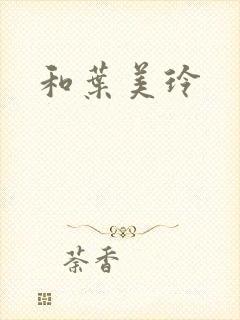 和葉美玲
荼香